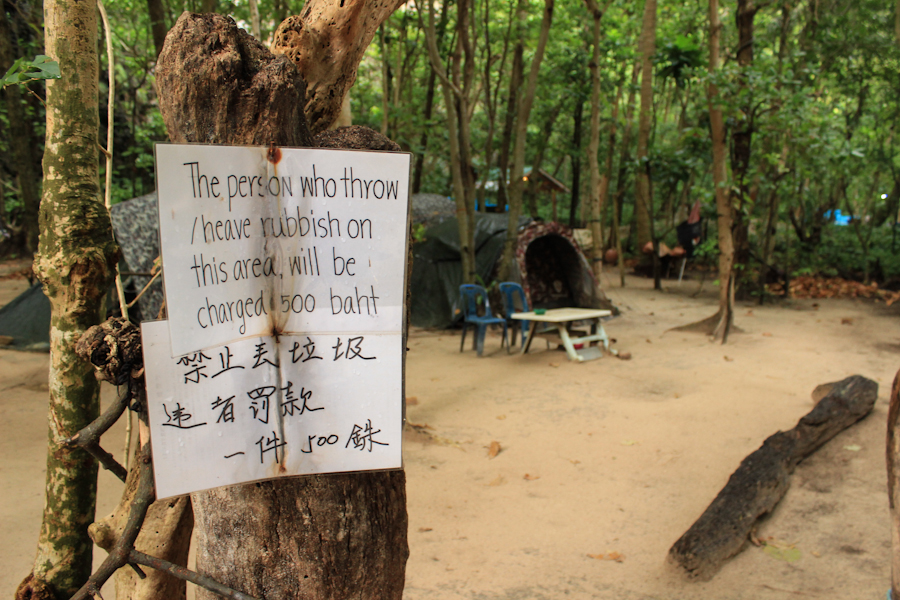 The person who throw
/heave rubbish on
this area, will be
charged 500 baht
禁止丟垃圾
违者罚款
一件 500 銖